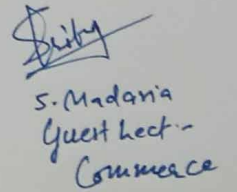 S. Madaria
Guest Lect.-
Commerce